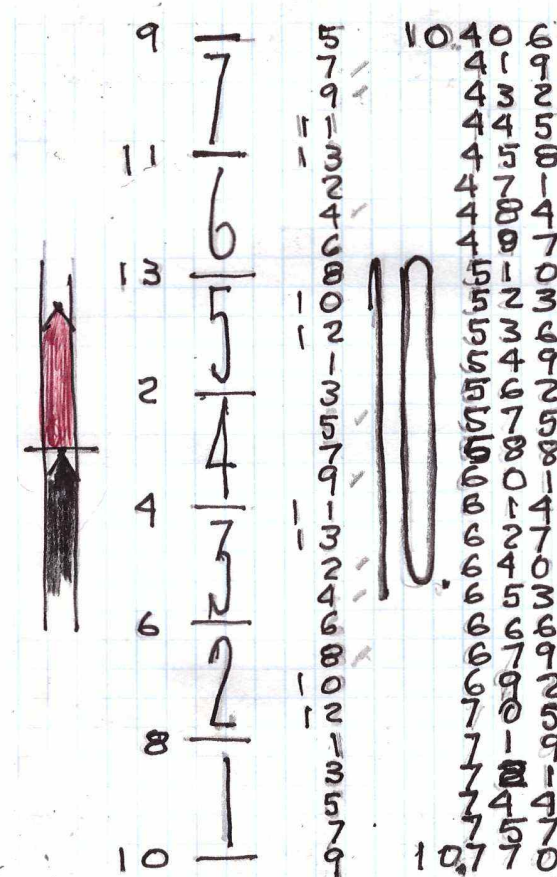 9
11
13
2
4
6
8
10
7
6
5
4
3
2
1
5
7
9
11
13
2
4
6
8
10
12
1
3
5
7
9
11
13
2
4
6
8
10
12
1
3
5
7
9
10.
10.406
419
432
445
458
471
484
497
510
523
536
549
562
575
588
601
614
627
640
653
666
679
692
705
719
7 1
744
757
10.770